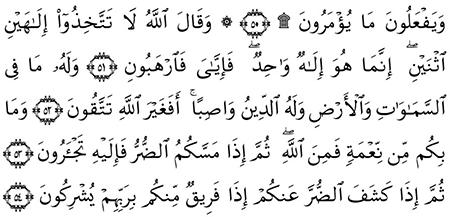 وَيَفۡعَلُونَ مَا يُؤۡمَرُونَ ۩ ٥٠ ۞ وَقَالَ ٱللَّهُ لَا تَتَّخِذُوٓاْ إِلَٰهَيۡنِ
ٱثۡنَيۡنِۖ إِنَّمَا هُوَ إِلَٰهٞ وَٰحِدٞ فَإِيَّٰيَ فَٱرۡهَبُونِ ٥١ وَلَهُۥ مَا فِي
ٱلسَّمَٰوَٰتِ وَٱلۡأَرۡضِ وَلَهُ ٱلدِّينُ وَاصِبًاۚ أَفَغَيۡرَ ٱللَّهِ تَتَّقُونَ ٥٢ وَمَا
بِكُم مِّن نِّعۡمَةٖ فَمِنَ ٱللَّهِۖ ثُمَّ إِذَا مَسَّكُمُ ٱلضُّرُّ فَإِلَيۡهِ تَجۡـَٔرُونَ ٥٣
ثُمَّ إِذَا كَشَفَ ٱلضُّرَّ عَنكُمۡ إِذَا فَرِيقٞ مِّنكُم بِرَبِّهِمۡ يُشۡرِكُونَ ٥٤